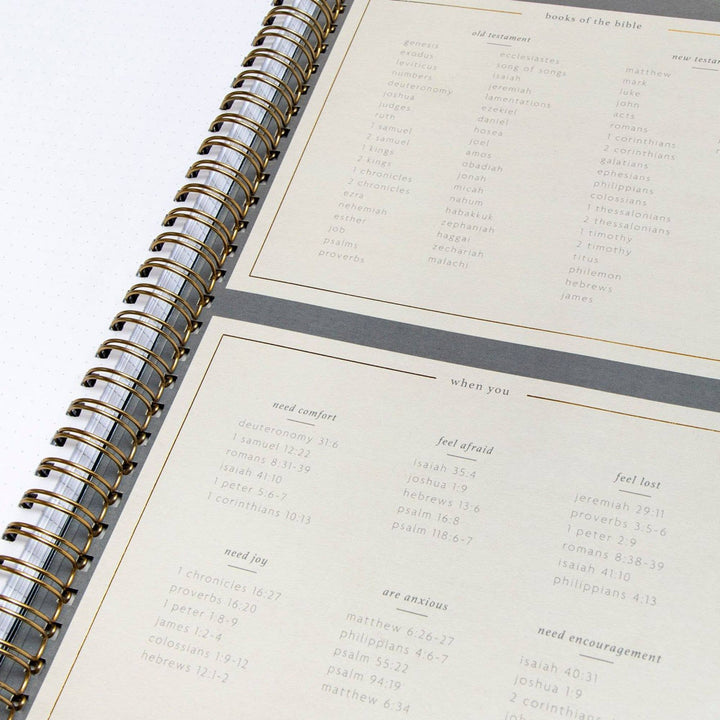 books of the bible
old testament
genesis
exodus
leviticus
numbers
deuteronomy
joshua
judges
ruth
1 samuel
2 samuel
1 kings
2 kings
1 chronicles
2 chronicles
ezra
nehemian
esther
job
psalms
proverbs
ecclesiastes
song of songs
isaiah
jeremiah
lamentations
ezekiel
daniel
hosea
joel
amos
obadiah
jonah
micah
nahum
habakkuk
zephaniah
haggai
zechariah
malachi
new testam
matthew
mark
luke
john
acts
romans
1 corinthians
2 corinthians
galatians
ephesians
philippians
colossians
1 thessalonians
2 thessalonians
1 timothy
2 timothy
titus
philemon
hebrews
james
when you
need comfort
deuteronomy 31:6
1 samuel 12:22
romans 8:31-39
isaiah 41:10
1 peter 5:6-7
1 corinthians 10:13
feel afraid
isaiah 35:4
joshua 1:9
hebrews 13:6
psalm 16:8
psalm 118:6-7
feel lost
jeremiah 29:11
proverbs 3:5-6
1 peter 2:9
romans 8:38-39
isaiah 41:10
philippians 4:13
need joy
1 chronicles 16:27
proverbs 16:20
1 peter 1:8-9
james 1:2-4
colossians 1:9-12
hebrews 12:1-2
are anxious
matthew 6:26-27
philippians 4:6-7
psalm 55:22
psalm 94:19
matthew 6:34
need encouragement
isaiah 40:31
joshua 1:9
2 corinthians